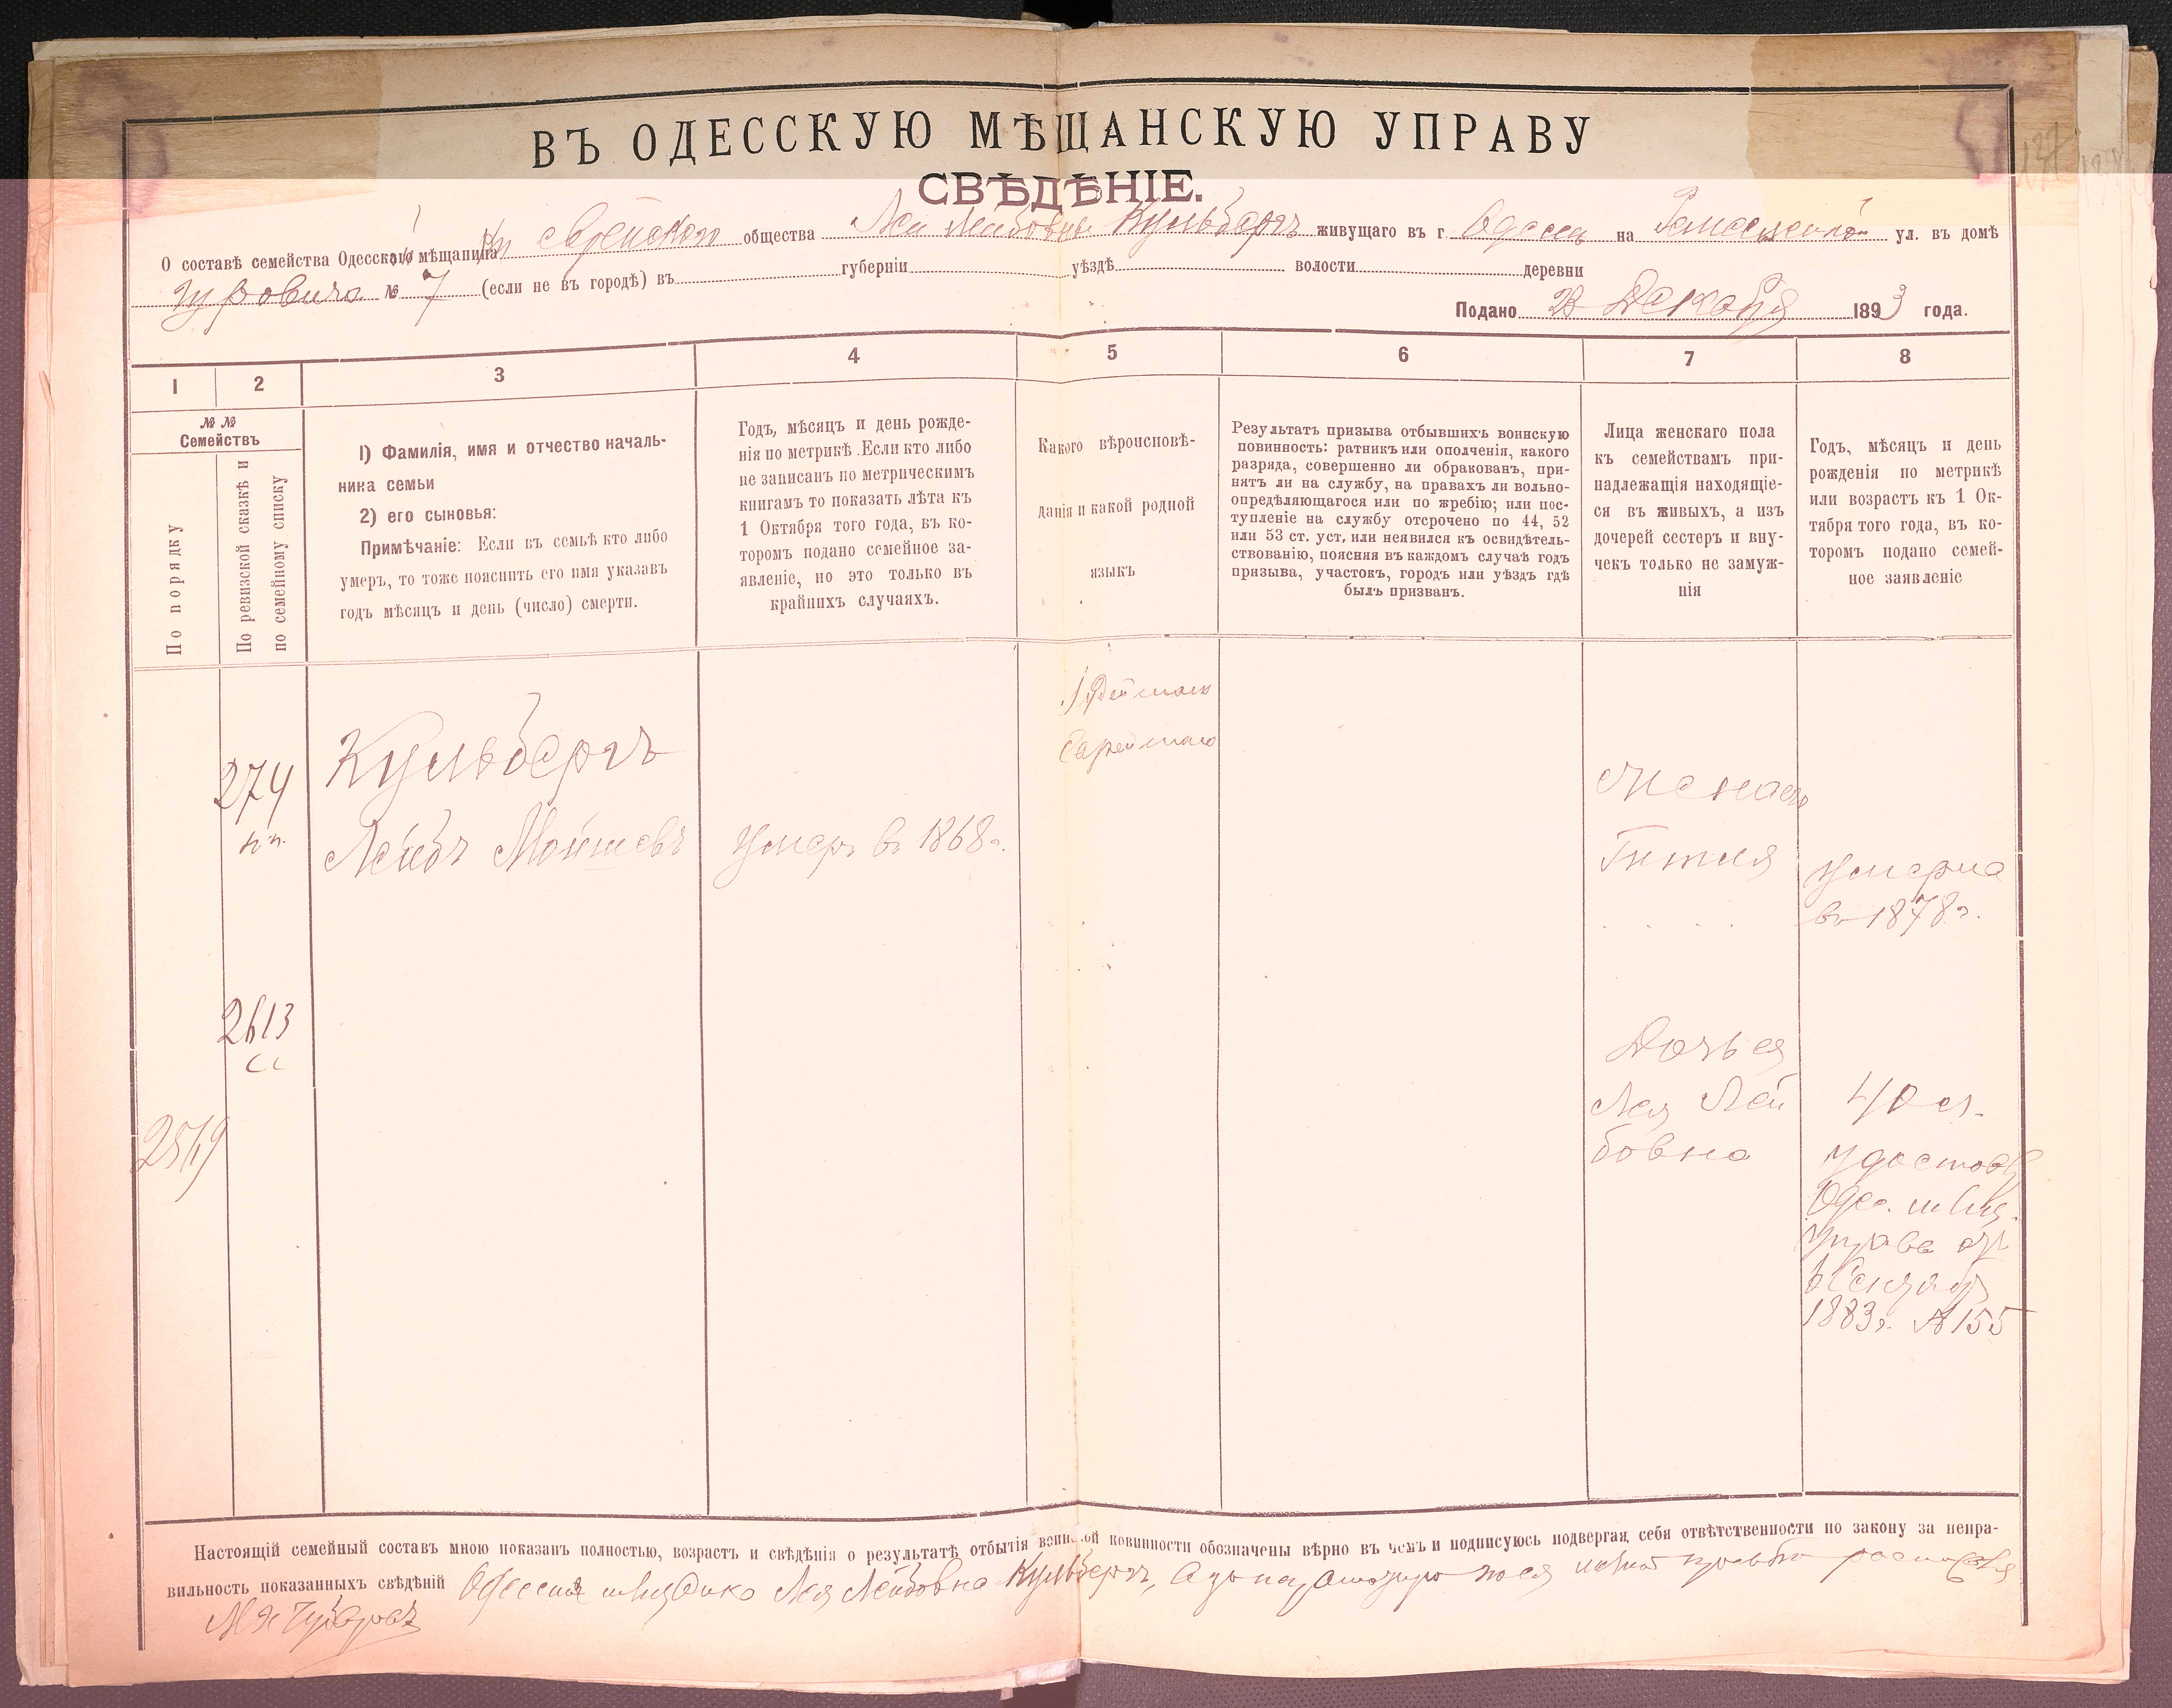 ВЪ ОДЕССКУЮ МѢЩАНСКУЮ УПРАВУ
СВѢДѢНІЕ.
О составѣ семейства Одесской мѣщанки еврейскаго общества Леи Лейбовны Кульбергъ живущаго въ г. Одессѣ на ул. въ домѣ
Гуровича № 7 (если не въ городѣ) въ губерніи уѣздѣ волости деревни
Подано 23 Декабря 1893 года.
1 2 3 4 5 6 7 8
№ №
Семействъ
По порядку
По ревизской сказкѣ и
по семейному списку
1) Фамилія, имя и отчество началь-
ника семьи
2) его сыновья:
Примѣчаніе: Если въ семьѣ кто либо
умеръ, то тоже пояснить его имя указавъ
годъ мѣсяцъ и день (число) смерти.
Годъ, мѣсяцъ и день рожде-
нія по метрикѣ. Если кто либо
не записанъ по метрическимъ
книгамъ то показать лѣта къ
1 Октября того года, въ ко-
торомъ подано семейное за-
явленіе, но это только въ
крайнихъ случаяхъ.
Какого вѣроисповѣ-
данія и какой родной
языкъ
Результатъ призыва отбывшихъ воинскую
повинность: ратникъ или ополченія, какого
разряда, совершенно ли обракованъ, при-
нятъ ли на службу, на правахъ ли вольно-
опредѣляющагося или по жребію; или пос-
тупленіе на службу отсрочено по 44, 52
или 53 ст. уст, или неявился къ освидѣтель-
ствованію, поясняя въ каждомъ случаѣ годъ
призыва, участокъ, городъ или уѣздъ гдѣ
былъ призванъ.
Лица женскаго пола
къ семействамъ при-
надлежащія находящіе-
ся въ живыхъ, а изъ
дочерей сестеръ и вну-
чекъ только не замуж-
нія
Годъ, мѣсяцъ и день
рожденія по метрикѣ
или возрастъ къ 1 Ок-
тября того года, въ ко-
торомъ подано семей-
ное заявленіе
Іудейскаго
Еврейскаго
274
Кульбергъ
Лейбъ Мойшевъ
умеръ въ 1868 г.
Жена его
Гитля
умерла
въ 1878 г.
2613
сс
Дочь ея
Лея Лей
бовна
40 л.
удостов.
Одес. мѣщ.
управы отъ
Сентября
1883 г. № 155
Настоящій семейный составъ мною показанъ полностью, возрастъ и свѣдѣнія о результатѣ отбытія воинской повинности обозначены вѣрно въ чемъ и подписуюсь подвергая себя отвѣтственности по закону за непра-
вильность показанныхъ свѣдѣній Одесская мѣщанка Лея Лейбовна Кульбергъ, а за неграмотную по ея личной просьбѣ росписался